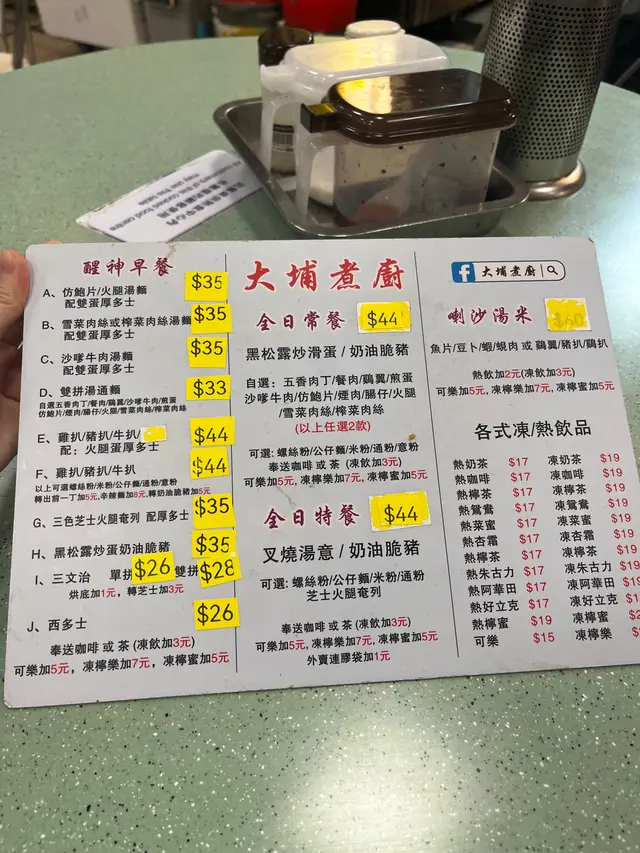 醒神早餐
A、仿鮑片/火腿湯麵 $35
配雙蛋厚多士
B、雪菜肉絲或榨菜肉絲湯麵 $35
配雙蛋厚多士
C、沙嗲牛肉湯麵 $35
配雙蛋厚多士
D、雙拼湯通麵 $33
自選五香肉丁/餐肉/鷄翼/沙嗲牛肉/煎蛋
仿鮑片/煙肉/腸仔/火腿/雪菜肉絲/榨菜肉絲
E、雞扒/豬扒/牛扒/ $44
配：火腿蛋厚多士
F、雞扒/豬扒/牛扒 $44
以上可選螺絲粉/米粉/公仔麵/通粉/意粉
轉出前一丁加5元,辛辣麵加8元,轉奶油脆豬加5元
G、三色芝士火腿奄列 配厚多士 $35
H、黑松露炒蛋奶油脆豬 $35
I、三文治 單拼 $26 雙拼 $28
烘底加1元，轉芝士加3元
J、西多士 $26
奉送咖啡 或 茶 (凍飲加3元)
可樂加5元，凍檸樂加7元，凍檸蜜加5元
大埔煮廚
全日常餐 $44
黑松露炒滑蛋 / 奶油脆豬
自選：五香肉丁/餐肉/鷄翼/煎蛋
沙嗲牛肉/仿鮑片/煙肉/腸仔/火腿
/雪菜肉絲/榨菜肉絲
(以上任選2款)
可選: 螺絲粉/公仔麵/米粉/通粉/意粉
奉送咖啡 或 茶 (凍飲加3元)
可樂加5元，凍檸樂加7元，凍檸蜜加5元
全日特餐 $44
叉燒湯意 / 奶油脆豬
可選: 螺絲粉/公仔麵/米粉/通粉
芝士火腿奄列
奉送咖啡 或 茶 (凍飲加3元)
可樂加5元，凍檸樂加7元，凍檸蜜加5元
外賣連膠袋加1元
f 大埔煮廚
喇沙湯米 $60
魚片/豆卜/蝦/蜆肉 或 鷄翼/豬扒/鷄扒
熱飲加2元(凍飲加3元)
可樂加5元, 凍檸樂加7元, 凍檸蜜加5元
各式凍/熱飲品
熱奶茶 $17 凍奶茶 $19
熱咖啡 $17 凍咖啡 $19
熱檸茶 $17 凍檸茶 $19
熱鴛鴦 $17 凍鴛鴦 $19
熱菜蜜 $17 凍菜蜜 $19
熱杏霜 $17 凍杏霜 $19
熱檸茶 $17 凍檸茶 $19
熱朱古力 $17 凍朱古力 $19
熱阿華田 $17 凍阿華田 $19
熱好立克 $17 凍好立克
熱檸蜜 $19 凍檸蜜
可樂 $15 凍檸樂